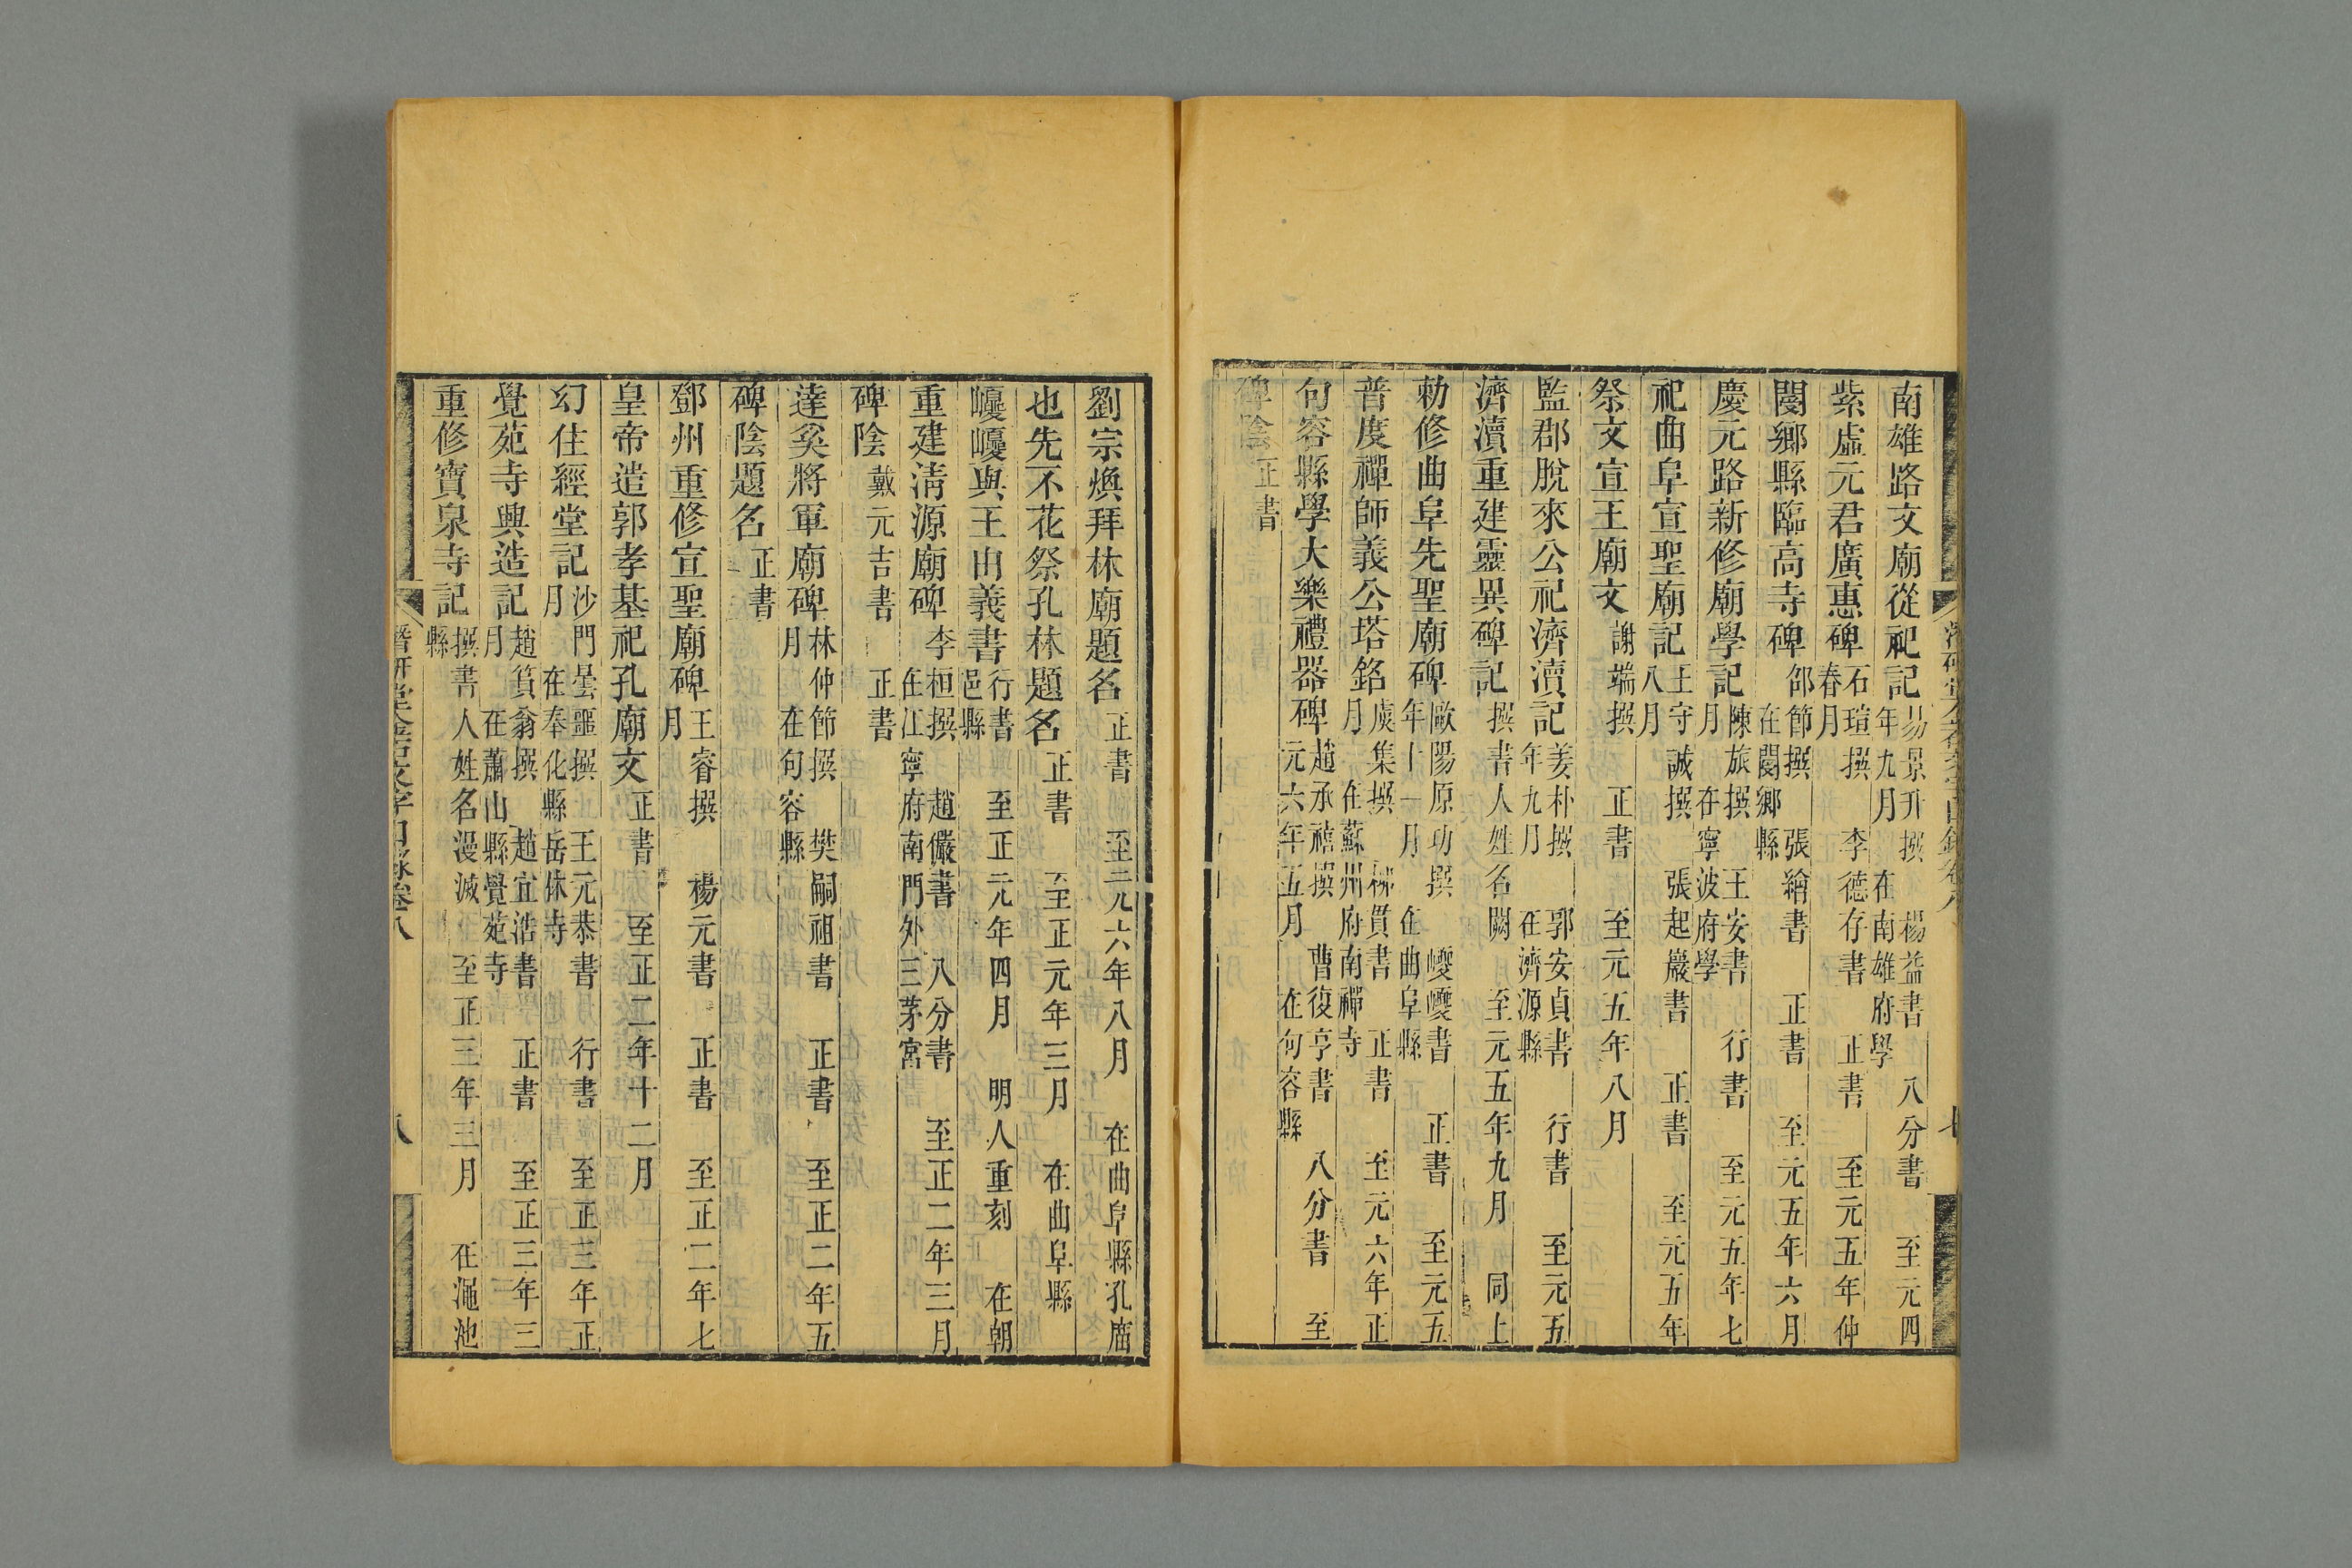 南雄路文廟從祀記 易景升撰 楊益書 八分書 至元四年九月 在南雄府學
紫虛元君廣惠碑 石瑄撰 李德存書 正書 至元五年仲春月
閿鄉縣臨高寺碑 邰節撰 張繪書 正書 至元五年六月 在閿鄉縣
慶元路新修廟學記 陳旅撰 王安書 行書 至元五年七月 在寧波府學
祀曲阜宣聖廟記 王守誠撰 張起巖書 正書 至元五年八月
祭文宣王廟文 謝端撰 正書 至元五年八月
監郡脫來公祀濟瀆記 姜朴撰 郭安貞書 行書 至元五年九月 在濟源縣
濟瀆重建靈異碑記 撰書人姓名闕 至元五年九月 同上
勅修曲阜先聖廟碑 歐陽原功撰 巙巙書 正書 至元五年十一月 在曲阜縣
普度禪師義公塔銘 虞集撰 柳貫書 正書 至元六年正月 在蘇州府南禪寺
句容縣學大樂禮器碑 趙承禧撰 曹復亨書 八分書 至元六年五月 在句容縣
碑陰 正書
七
劉宗煥拜林廟題名 正書 至元六年八月 在曲阜縣孔廟
也先不花祭孔林題名 正書 至正元年三月 在曲阜縣
巙巙與王由義書 行書 至正元年四月 明人重刻 在朝邑縣
重建淸源廟碑 李桓撰 趙儼書 八分書 至正二年三月 在江寧府南門外三茅宮
碑陰 戴元吉書 正書
達奚將軍廟碑 林仲節撰 樊嗣祖書 正書 至正二年五月 在句容縣
碑陰題名 正書
鄧州重修宣聖廟碑 王睿撰 楊元書 正書 至正二年七月
皇帝造郭孝基祀孔廟文 正書 至正二年十二月
幻住經堂記 沙門曇噩撰 王元恭書 行書 至正三年正月 在奉化縣岳林寺
覺苑寺興造記 趙篔翁撰 趙宜浩書 正書 至正三年三月 在蕭山縣覺苑寺
重修寶泉寺記 撰書人姓名漫滅 至正三年三月 在澠池縣
潛研堂金石文字目錄卷八 八